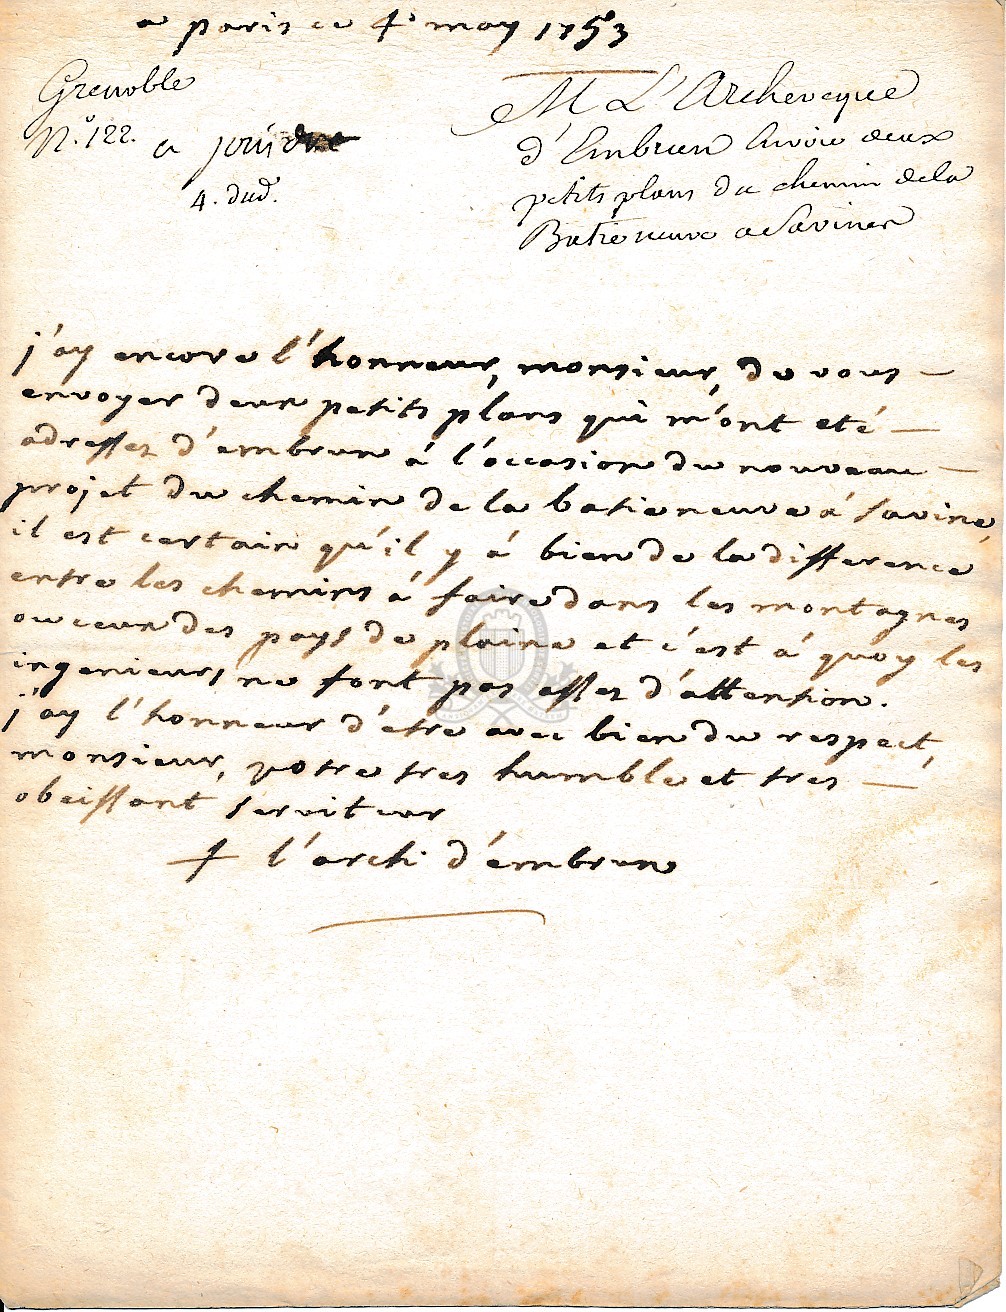 a paris ce 4e may 1753
Grenoble
N.o 122.
a joindre
4. dud.
M L'Archeveque
d'Embrun Envoie deux
petits plans du chemin de la
Batieneuve a Savines
j'ay encore l'honneur, monsieur, de vous —
envoyer deux petits plans qui m'ont eté —
adressez d'embrun à l'occasion du nouveau —
projet du chemin de la batieneuve à savine,
il est certain qu'il y á bien de la difference
entre les chemins á faire dans les montagnes
ou ceux des pays de plaine et c'est á quoy les
ingenieurs ne font pas assez d'attention.
j'ay l'honneur d'etre avec bien du respect,
monsieur, votre tres humble et tres —
obeissant serviteur
+ l'archi. d'embrun